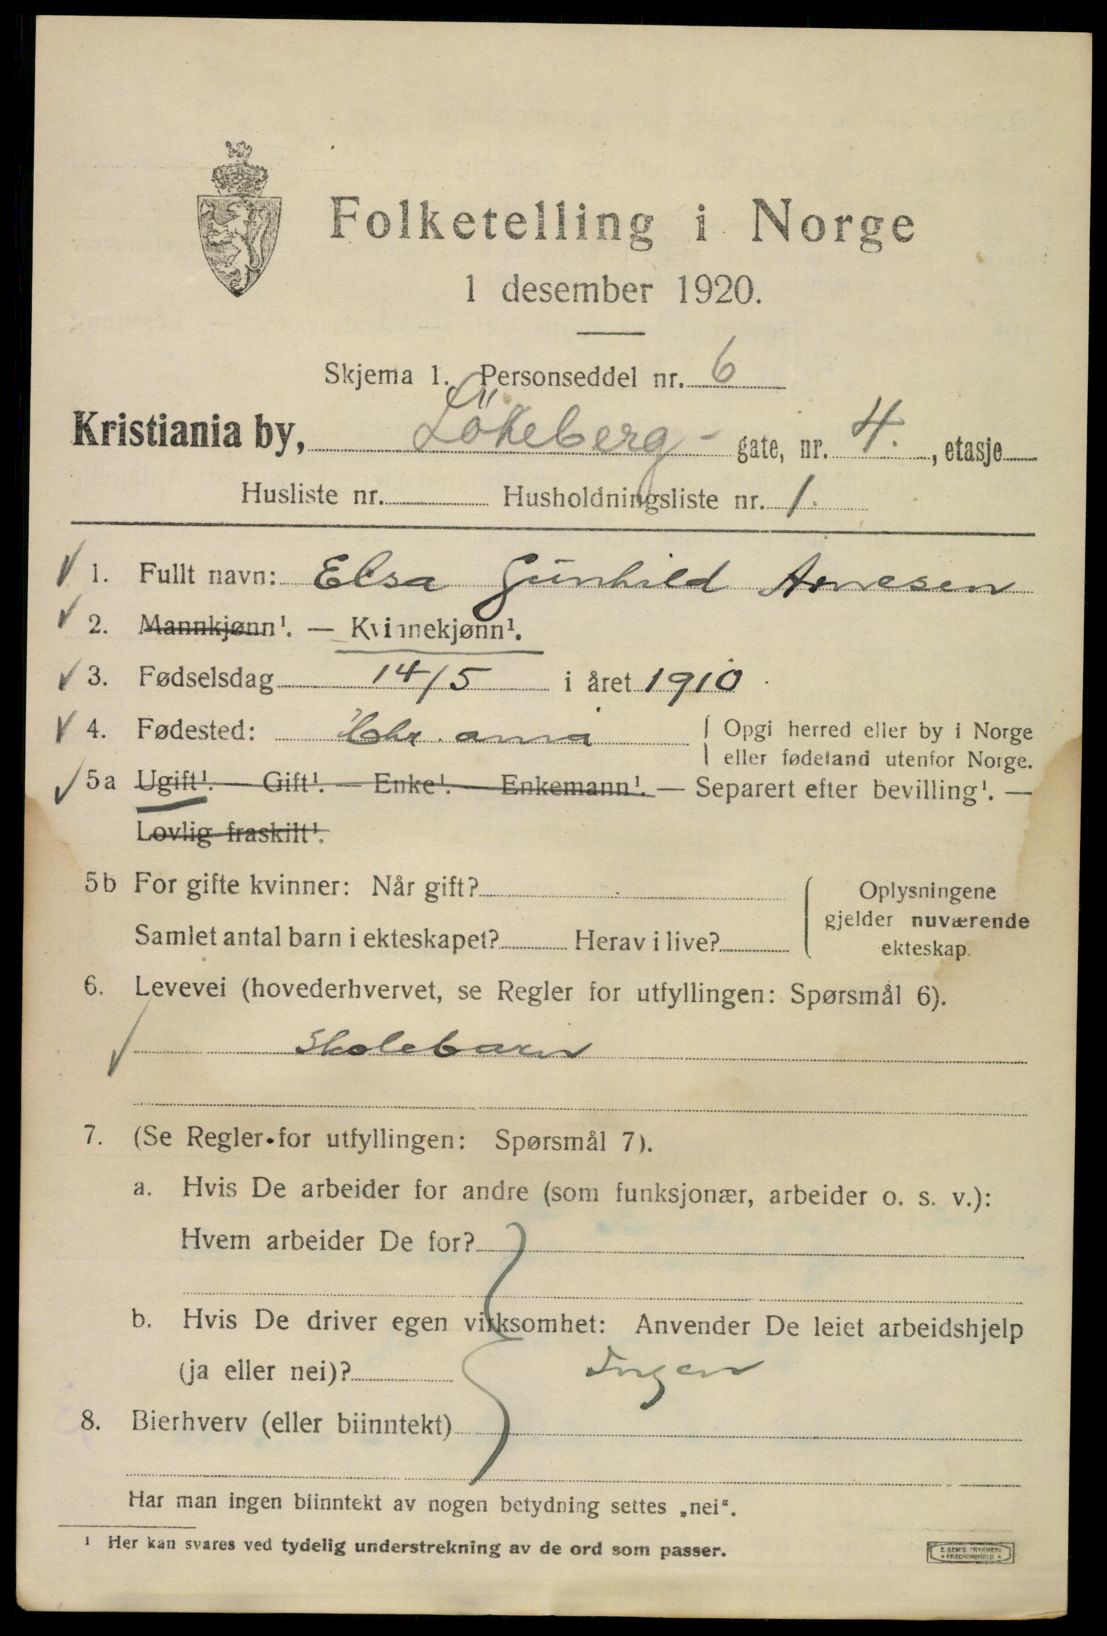 Folketelling i Norge
1 desember 1920.
Skjema 1. Personseddel nr. 6
Kristiania by, Lökeberg- gate, nr. 4. , etasje
Husliste nr. Husholdningsliste nr. 1.
1. Fullt navn: Elsa Gunhild Arnesen
2. Mannkjønn¹. — Kvinnekjønn¹.
3. Fødselsdag 14/5 i året 1910
4. Fødested: Chr.ania { Opgi herred eller by i Norge
eller fødeland utenfor Norge.
5a Ugift¹. — Gift¹. — Enke¹. — Enkemann¹. — Separert efter bevilling¹. —
Lovlig fraskilt¹.
5b For gifte kvinner: Når gift? { Oplysningene
gjelder nuværende
Samlet antal barn i ekteskapet? Herav i live? ekteskap.
6. Levevei (hovederhvervet, se Regler for utfyllingen: Spørsmål 6).
Skolebarn
7. (Se Regler for utfyllingen: Spørsmål 7).
a. Hvis De arbeider for andre (som funksjonær, arbeider o. s. v.):
Hvem arbeider De for?
b. Hvis De driver egen virksomhet: Anvender De leiet arbeidshjelp
(ja eller nei)? Ingen
8. Bierhverv (eller biinntekt)
Har man ingen biinntekt av nogen betydning settes „nei“.
¹ Her kan svares ved tydelig understrekning av de ord som passer.
E. SEM'S TRYKKERI
• FREDRIKSHALD •